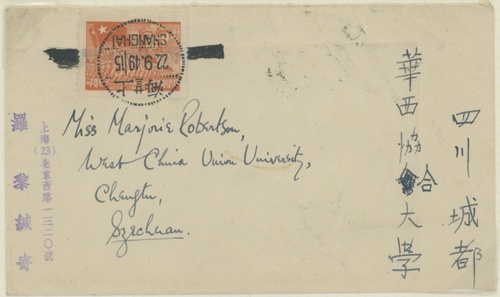 上海
SHANGHAI
22.9.49 15
Miss Marjorie Robertson,
West China Union University,
Chengtu,
Szechuan.
四川城都
華西協合大學
上海(23)北京西路一三二〇號
羅 緘寄